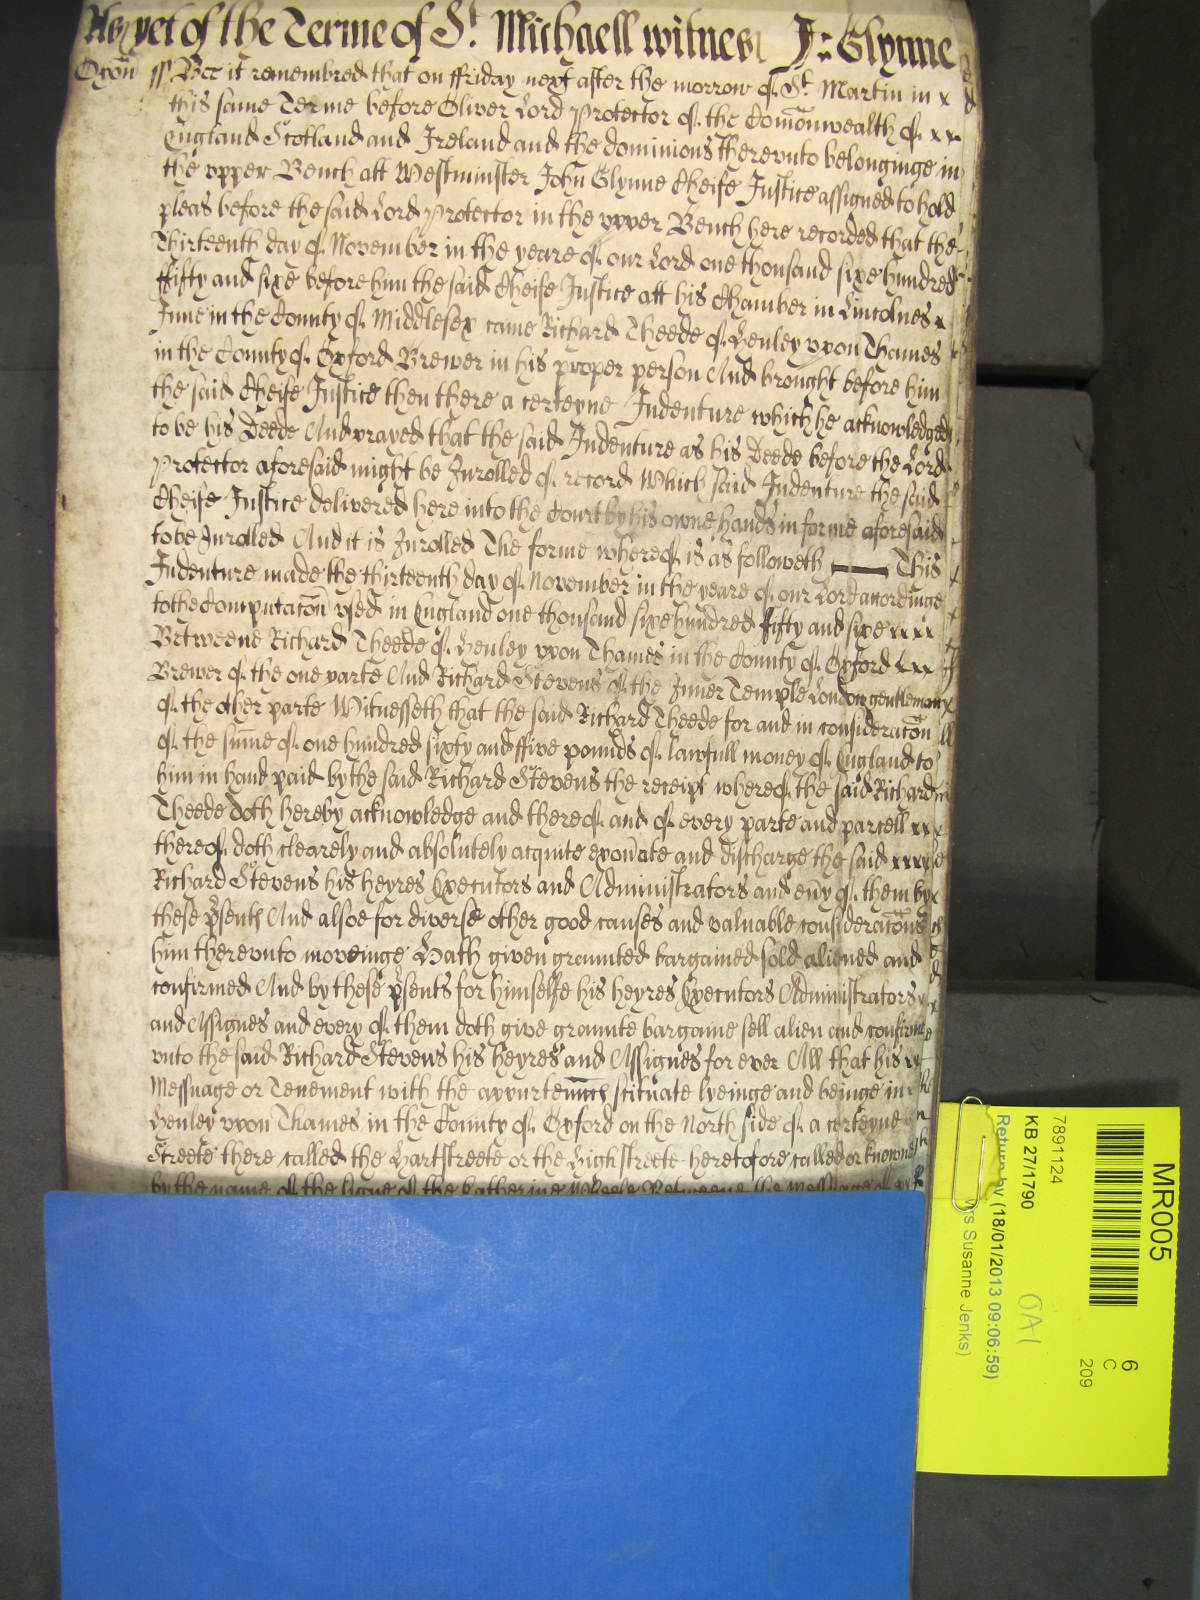 As yet of the Terme of St Michaell witnes J: Glynne
Oxon ss Bee it remembred that on ffriday next after the morrow of St Martin in x
this same Terme before Oliver Lord Protector of the Comonwealth of x x
England Scotland and Ireland and the dominions therevnto belonginge in
the vpper Bench att Westminster John Glynne Cheife Justice assigned to hold
pleas before the said Lord Protector in the vpper Bench here recorded that the
Thirteenth day of November in the yeare of our Lord one thousand sixe hundred
ffifty and sixe before him the said Cheife Justice att his Chamber in Lincolnes x
Inne in the County of Middlesex came Richard Theede of Henley vpon Thames
in the County of Oxford Brewer in his proper person And brought before him
the said Cheife Justice then there a certeyne Indenture which he acknowledged
to be his Deede And prayed that the said Indenture as his Deede before the Lord
Protector aforesaid might be Inrolled of record Which said Indenture the said
Cheife Justice delivered here into the Court by his owne hands in forme aforesaid
to be Inrolled And it is Inrolled The forme whereof is as followeth This
Indenture made the thirteenth day of November in the yeare of our Lord accordinge
to the Computacon vsed in England one thousand sixe hundred fifty and sixe x x x x
Betweene Richard Theede of Henley vpon Thames in the County of Oxford x x x
Brewer of the one parte And Richard Stevens of the Inner Temple London gentleman x
of the other parte Witnesseth that the said Richard Theede for and in consideracon
of the sume of one hundred sixty and ffive pounds of lawfull money of England to
him in hand paid by the said Richard Stevens the receipt whereof the said Richard
Theede doth hereby acknowledge and thereof and of every parte and parcell x x x
thereof doth clearely and absolutely acquite exonate and discharge the said x x x x
Richard Stevens his heyres Executors and Administrators and eny of them by x
these psents And alsoe for diverse other good causes and valuable consideracons
him therevnto moveinge Hath given graunted bargained sold aliened and
confirmed And by these psents for himselfe his heyres Executors Administrators
and Assignes and every of them doth give graunte bargaine sell alien and confirme
vnto the said Richard Stevens his heyres and Assignes for ever All that his x x
Messuage or Tenement with the appurtennces scituate lyeinge and beinge in
Henley vpon Thames in the County of Oxford on the North side of a certeyne
Streete there called the Hartstreete or the High streete heretofore called or knowne
by the name of the signe of the Katherine Wheele Betweene the messuage of
MR005
6
C
209
7891124
KB 27/1790
OA1
Return by (18/01/2013 09:06:59)
Mrs Susanne Jenks)